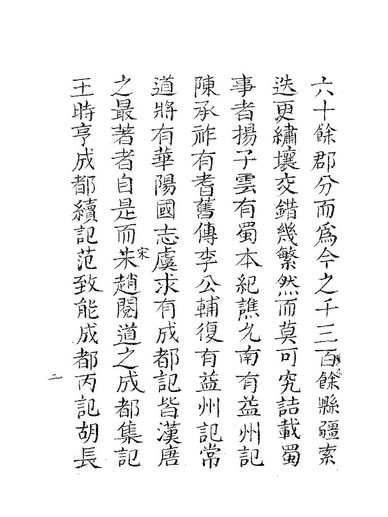 六十餘郡分而為今之千三百餘縣疆索
迭更繡壤交錯幾繁然而莫可究詰載蜀
事者揚子雲有蜀本紀譙允南有益州記
陳承祚有耆舊傳李公輔復有益州記常
道將有華陽國志虞求有成都記皆漢唐
之最著者自是而宋趙閱道之成都集記
王時亨成都續記范致能成都丙記胡長
二